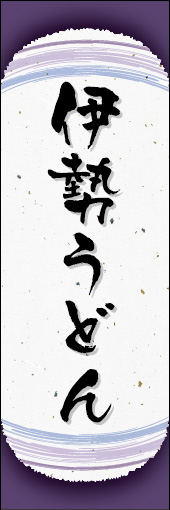 伊勢うどん